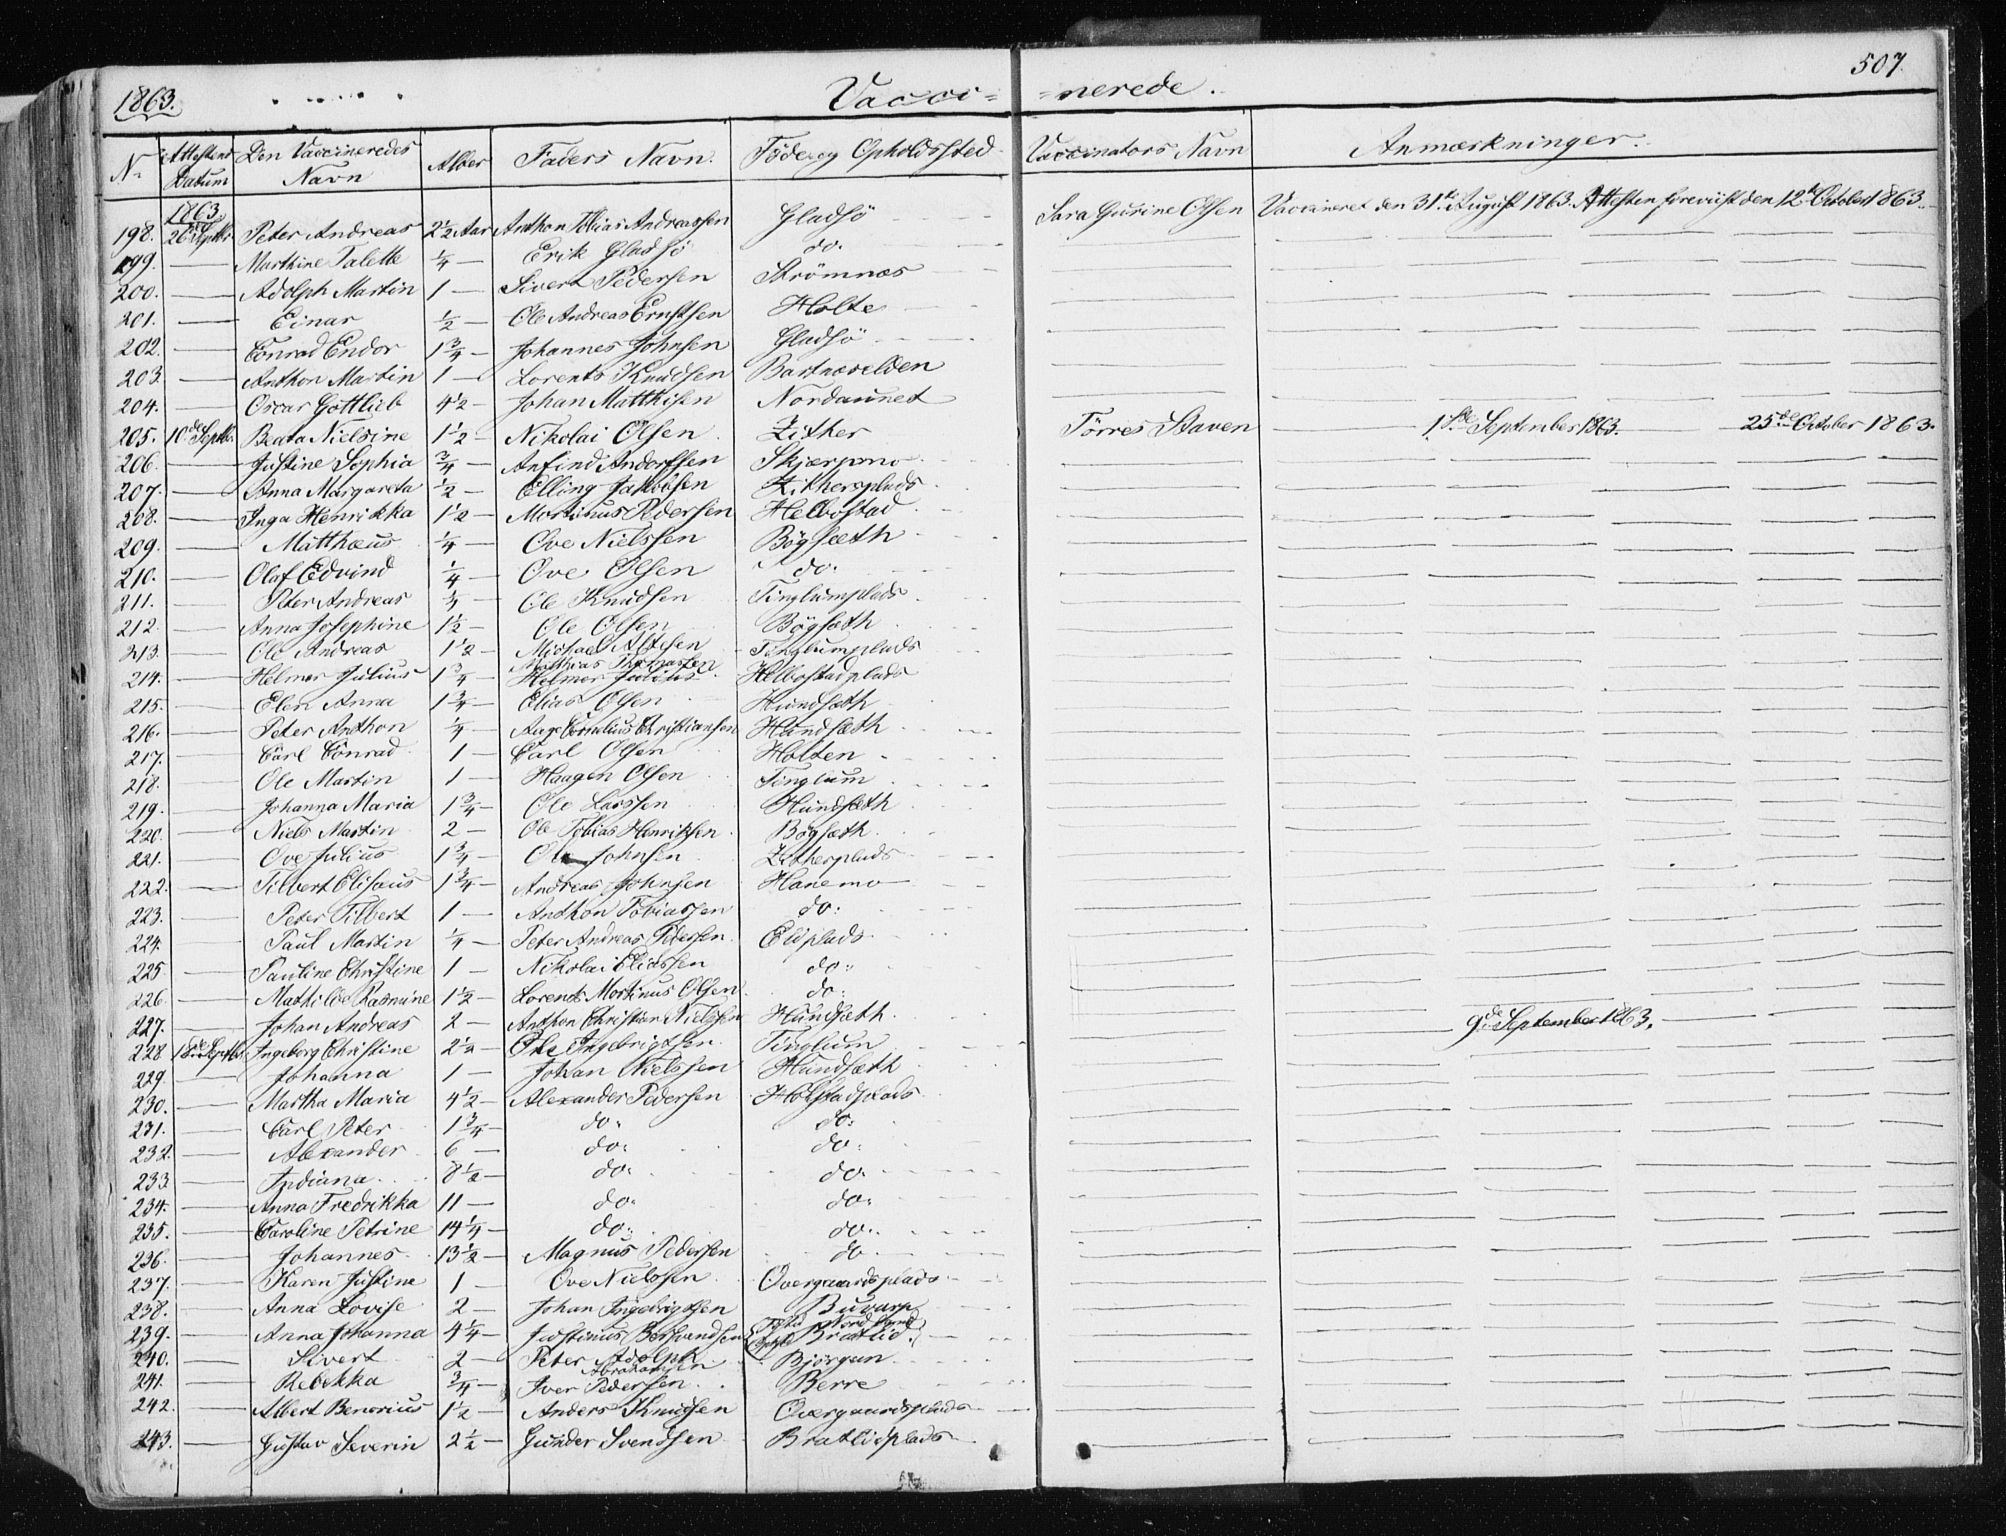 1863. Vacci= =nerede. 507.
No Attestens Datum Den Vaccineredes Navn Alder Faders Navn. Føde og Opholdssted Vaccinators Navn Anmærkninger.
1863
198. 26 Septbr Peter Andreas 2½ Aar Anthon Tobias Andreassen Gladsö Sara Gurine Olsen Vaccineret den 31te August 1863. Attesten foreviist den 12te October 1863.
199. — Marthine Talette ¼ — Erik Gladsö do.
200. — Adolph Martin 1 — Sivert Pedersen Strömnæs
201. — Einar ½ — Ole Andreas Ernstsen Holte
202. — Conrad Endor 1¾ — Johannes Johnsen Gladsö
203. — Anthon Martin 1 — Lorents Knudsen Bartnæselden
204. — Oscar Gottlieb 4½ — Johan Matthisen Nordaunet
205. 10de Septbr. Beata Nielsine 1½ — Nikolai Olsen Zither Törres Staven — 1ste September 1863. — 25de October 1863.
206. — Justine Sophia ¾ — Anfind Andorssen Skjærpmo
207. — Anna Margareta ½ — Elling Jakobsen Zithersplads
208. — Inga Henrikka 1½ — Mortinus Pedersen Helbostad
209. — Matthæus ¼ — Ove Nielssen Bögsæth
210. — Olaf Edvind ¼ — Ove Olsen do.
211. — Peter Andreas ¼ — Ole Knudsen Tinglumplads
212. — Anna Josephine 1½ — Ole Olsen Bögsæth
213. — Ole Andreas 1½ — Michael Altesen Tinglumplads
Matthias Thomassen
214. — Helmer Julius 1¾ — Helmer Julius Helbostadplads
215. — Elen Anna 1¾ — Elias Olsen Hundsæth
216. — Peter Anthon ¼ — Aage Cornelius Christiansen Hundsæth
217. — Carl Conrad 1 — Carl Olsen Holten
218. — Ole Martin 1 — Haagen Olsen Tinglum
219. — Johanna Maria 1¾ — Ole Larssen Hundsæth
220. — Niels Martin 2 — Ole Tobias Henriksen Bögsæth
221. — Ove Julius 1¾ — Ole Johnsen Zitherplads
222. — Tilbert Elisæus 1¾ — Andreas Johnsen Hanemo
223. — Peter Tilbert 1 — Anthon Tobiassen do:
224. — Paul Martin ¼ — Peter Andreas Petersen Eidplads
225 — Pauline Christine 1 — Nikolai Eliassen do:
226. — Mathilde Rasmine 1½ — Lorents Mortinus Olsen do:
227. — Johan Andreas 2 — Anthon Christian Nielssen Hundsæth 9de September 1863.
228 Septbr Ingeborg Christine 2½ — Ole Ingebrigtsen Tinglum
229. — Johanna 1 — Johan Nielssen Hundsæth
230. — Martha Maria 4½ — Alexander Pedersen Holstadplads
231. — Carl Peter 1¾ — do: do:
232. — Alexander 6 — do: do:
233 — Indiana 8½ — do: do:
234. — Anna Fredrikka 11 — do: do:
235. — Caroline Petrine 14¼ — do: do:
236. — Johannes 13½ — Magnus Pedersen do
237. — Karen Justine 1 — Ove Nielssen Overgaardsplads
238. — Anna Lovise 2 — Johan Ingebrigtsen Buvarp
239. — Anna Johanna 4¼ — Justinus Bersvendsen Bratlid
240. — Sivert 2 — Peter Adolph Abrahamsen Björgan
241. — Rebekka ¾ — Iver Pedersen Berre
242. — Albert Benorius 1½ — Anders Knudsen Overgaardsplads
243. — Gustav Severin 2½ — Gunder Svendsen Bratlidplads